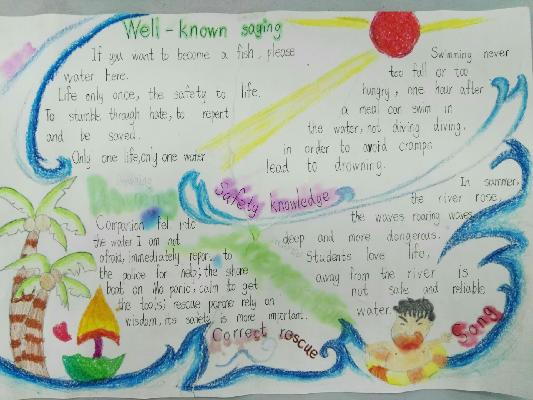 Well-known saying
If you want to become a fish, please
water here.
Life only once, the safety to life.
To stumble through hate, to repert
and be saved.
Only one life, only one water
Swimming never
too full or too
hungry, one hour after
a meal can swim in
the water, not diving diving.
in order to avoid cramps
lead to drowning.
Safety knowledge
Companion fell into
the water I am not
afraid, immediately report to
the police for help; the shore
boat on No panic, calm to get
the tools; rescue partner rely on
wisdom, its safety is more important.
Correct rescue
In summer,
the river rose,
the waves roaring waves
deep and more dangerous.
Students love life,
away from the river is
not safe and reliable
water.
Song